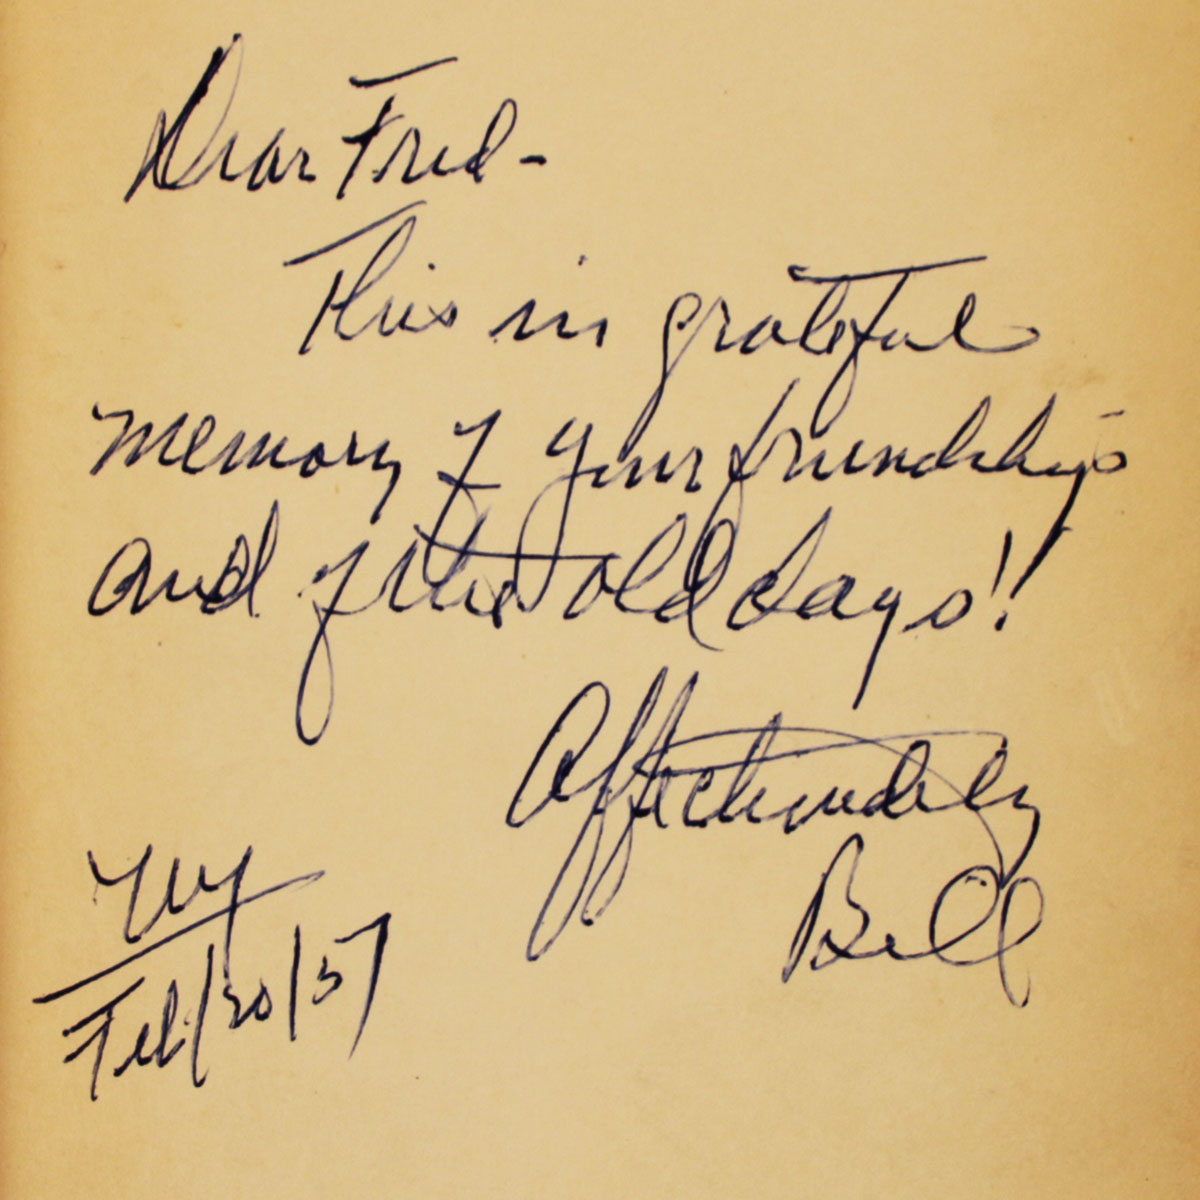 Dear Fred-
This in grateful
memory of your friendship
and of the old days!!
Affectionately
Bill
NY
Feb/20/57